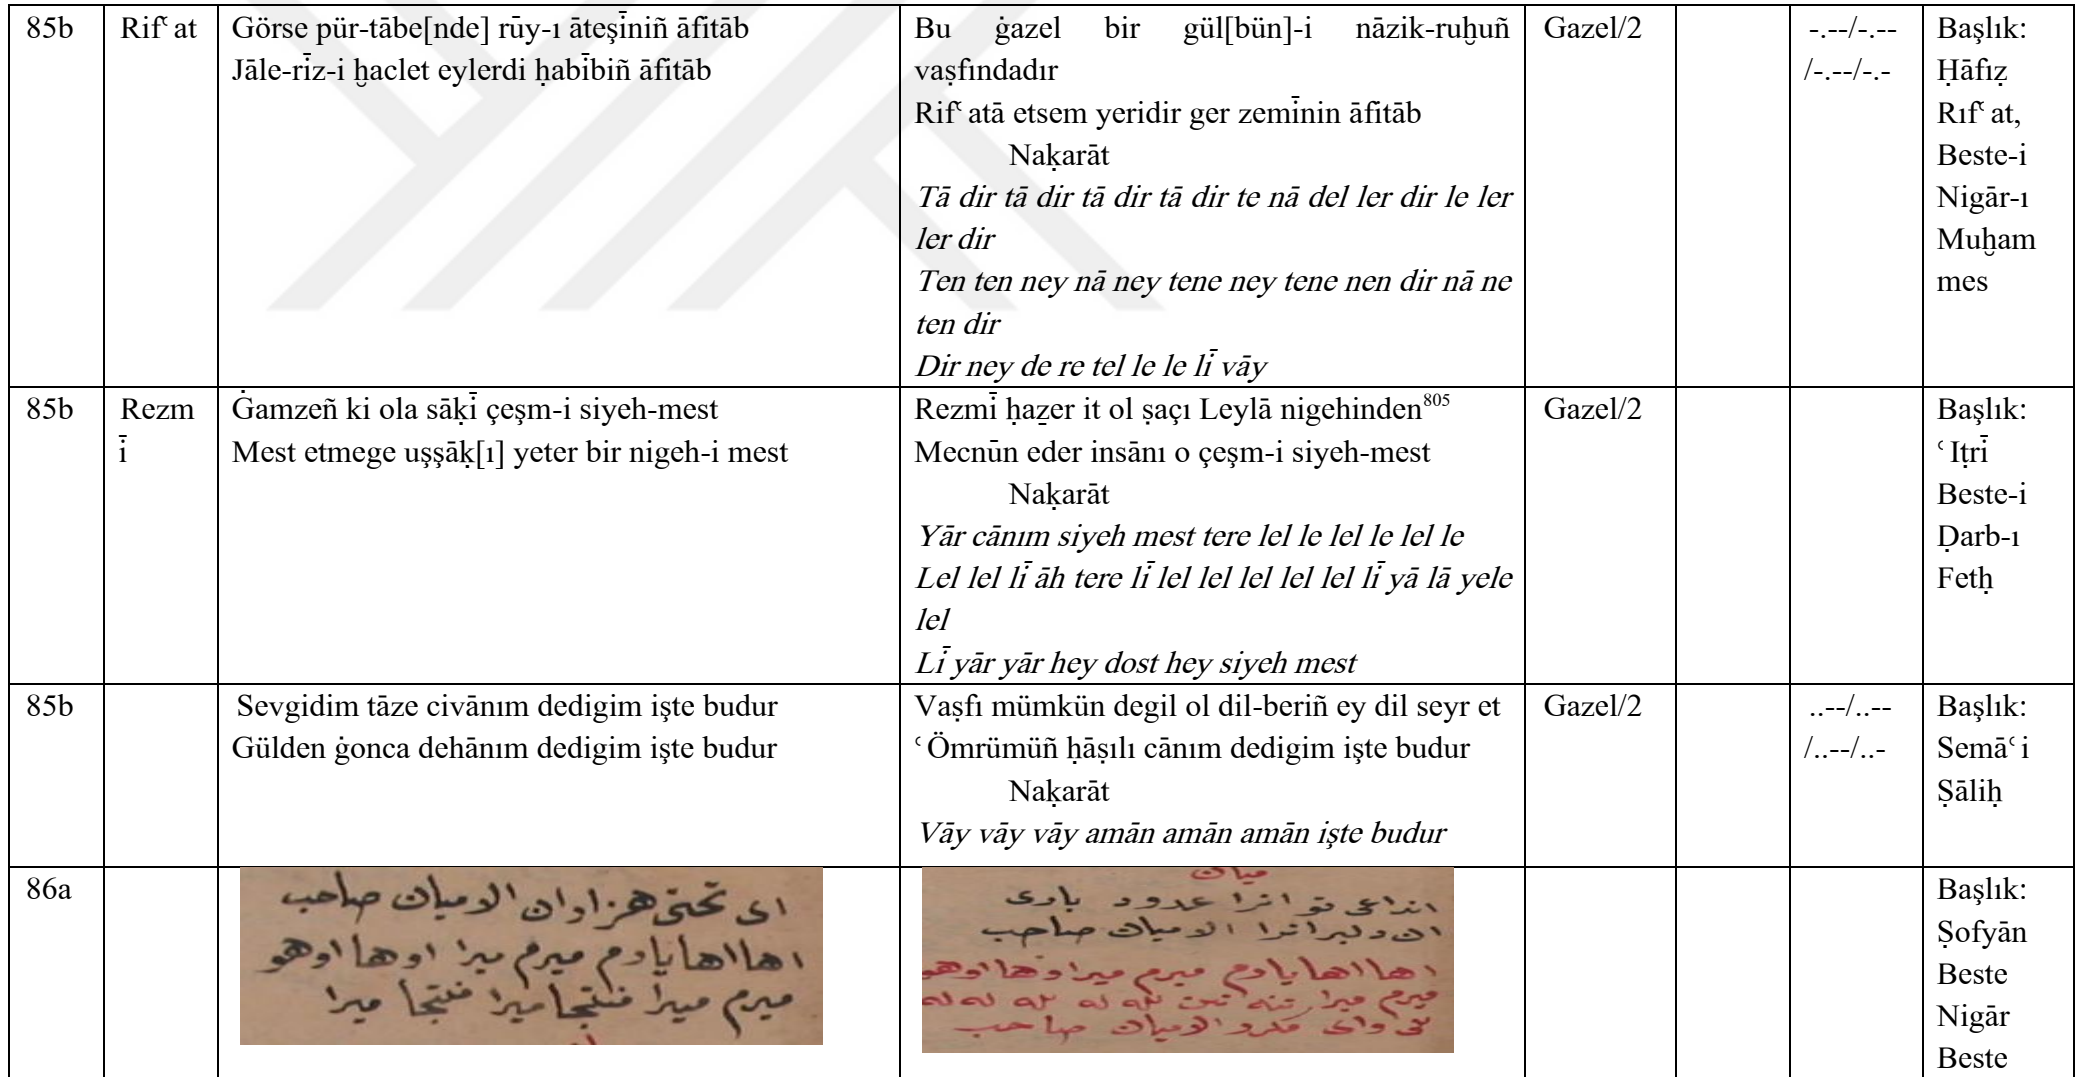 85b
Rifʿat
Görse pür-tābe[nde] rūy-ı āteşīniñ āfitāb
Jāle-rīz-i ḫaclet eylerdi ḥabībiñ āfitāb
Bu ġazel bir gül[bün]-i nāzik-ruḫuñ
vaṣfındadır
Rifʿatā etsem yeridir ger zemīnin āfitāb
Naḳarāt
Tā dir tā dir tā dir tā dir te nā del ler dir le ler
ler dir
Ten ten ney nā ney tene ney tene nen dir nā ne
ten dir
Dir ney de re tel le le lī vāy
Gazel/2
-.--/-.--
/-.--/-.-
Başlık:
Ḥāfıẓ
Rıfʿat,
Beste-i
Nigār-ı
Muḫam
mes
85b
Rezm
ī
Ġamzeñ ki ola sāḳī çeşm-i siyeh-mest
Mest etmege uşşāḳ[ı] yeter bir nigeh-i mest
Rezmī ḥaẕer it ol ṣaçı Leylā nigehinden805
Mecnūn eder insānı o çeşm-i siyeh-mest
Naḳarāt
Yār cānım siyeh mest tere lel le lel le lel le
Lel lel lī āh tere lī lel lel lel lel lel lī yā lā yele
lel
Lī yār yār hey dost hey siyeh mest
Gazel/2
Başlık:
ʿIṭrī
Beste-i
Ḍarb-ı
Fetḥ
85b
Sevgidim tāze civānım dedigim işte budur
Gülden ġonca dehānım dedigim işte budur
Vaṣfı mümkün degil ol dil-beriñ ey dil seyr et
ʿÖmrümüñ ḥāṣılı cānım dedigim işte budur
Naḳarāt
Vāy vāy vāy amān amān amān işte budur
Gazel/2
..--/..--
/..--/..-
Başlık:
Semāʿi
Ṣāliḥ
86a
ای تختی هزاران الامیان صاحب
اها اها یادم میرم میرا اوها اوهو
میرم میرا میرا میرا
میان
الامیان صاحب
اها اها یادم میرم میرا اوها اوهو
میرم میرا تنه تن لله له لله له له له
وای الامیان صاحب
Başlık:
Ṣofyān
Beste
Nigār
Beste